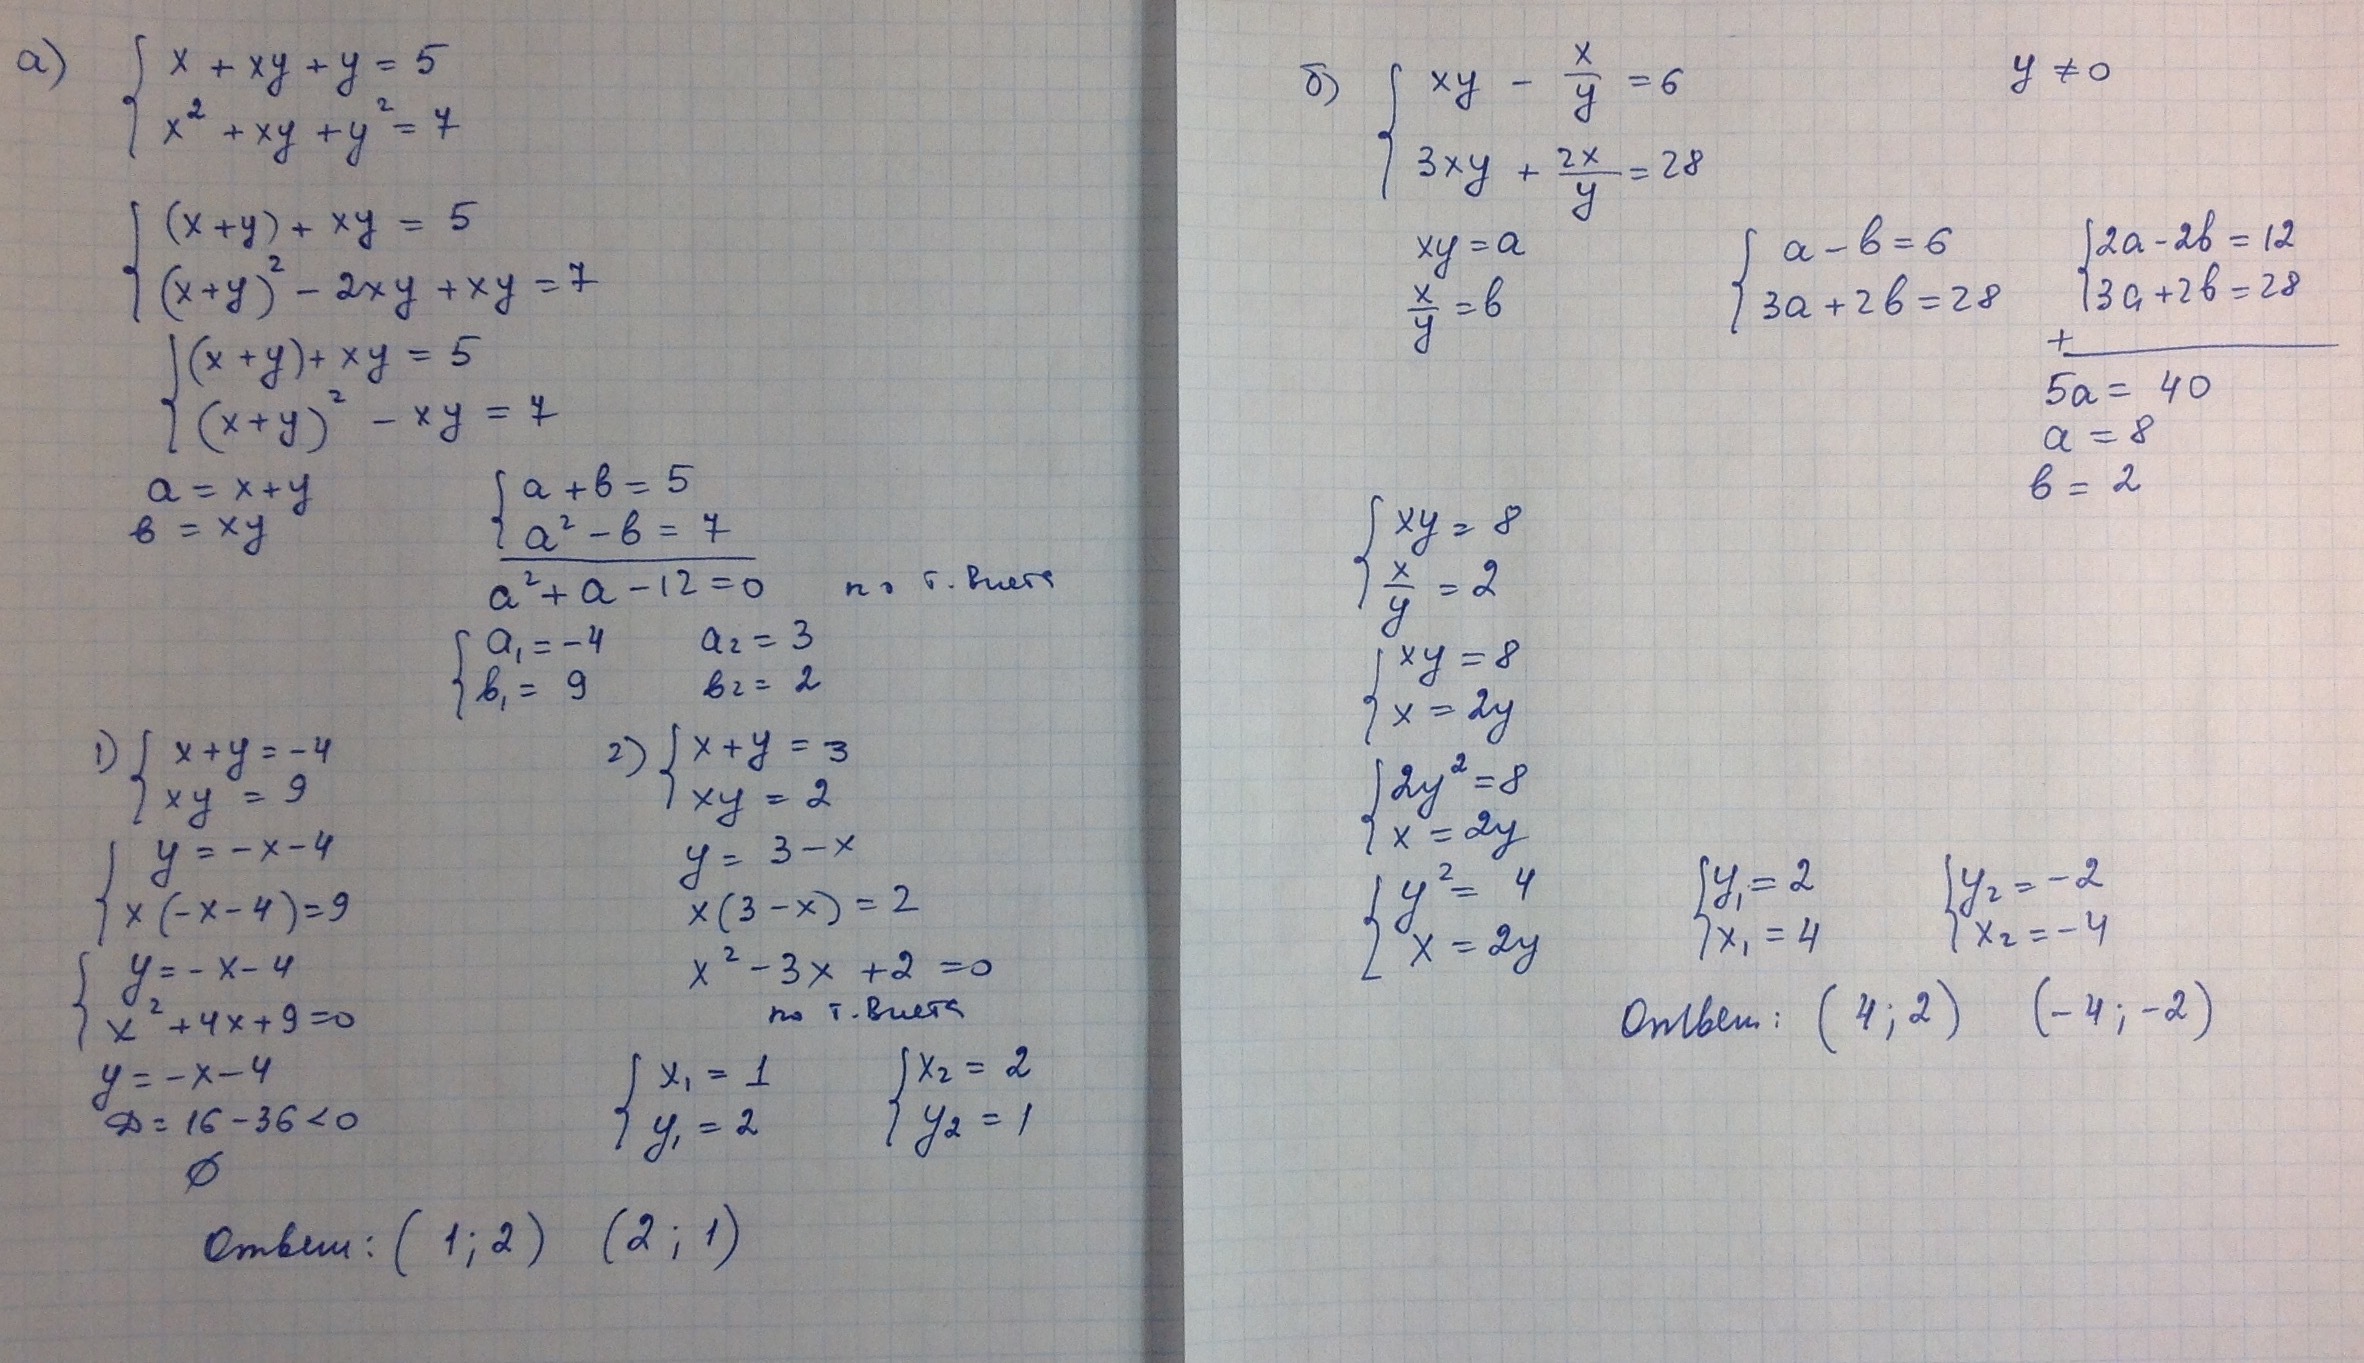 а) { x + xy + y = 5
x² + xy + y² = 7
{ (x+y) + xy = 5
(x+y)² - 2xy + xy = 7
{ (x+y) + xy = 5
(x+y)² - xy = 7
a = x+y
b = xy
{ a + b = 5
a² - b = 7
a² + a - 12 = 0 по т. Виета
{ a₁ = -4 a₂ = 3
b₁ = 9 b₂ = 2
1) { x+y = -4
xy = 9
{ y = -x-4
x(-x-4) = 9
{ y = -x-4
x² + 4x + 9 = 0
y = -x-4
D = 16 - 36 < 0
∅
2) { x+y = 3
xy = 2
y = 3-x
x(3-x) = 2
x² - 3x + 2 = 0
по т. Виета
{ x₁ = 1 { x₂ = 2
y₁ = 2 y₂ = 1
Ответ: (1; 2) (2; 1)
б) { xy - x/y = 6 y ≠ 0
3xy + 2x/y = 28
xy = a
x/y = b
{ a - b = 6
3a + 2b = 28
{ 2a - 2b = 12
3a + 2b = 28
+
5a = 40
a = 8
b = 2
{ xy = 8
x/y = 2
{ xy = 8
x = 2y
{ 2y² = 8
x = 2y
{ y² = 4 { y₁ = 2 { y₂ = -2
x = 2y x₁ = 4 x₂ = -4
Ответ: (4; 2) (-4; -2)